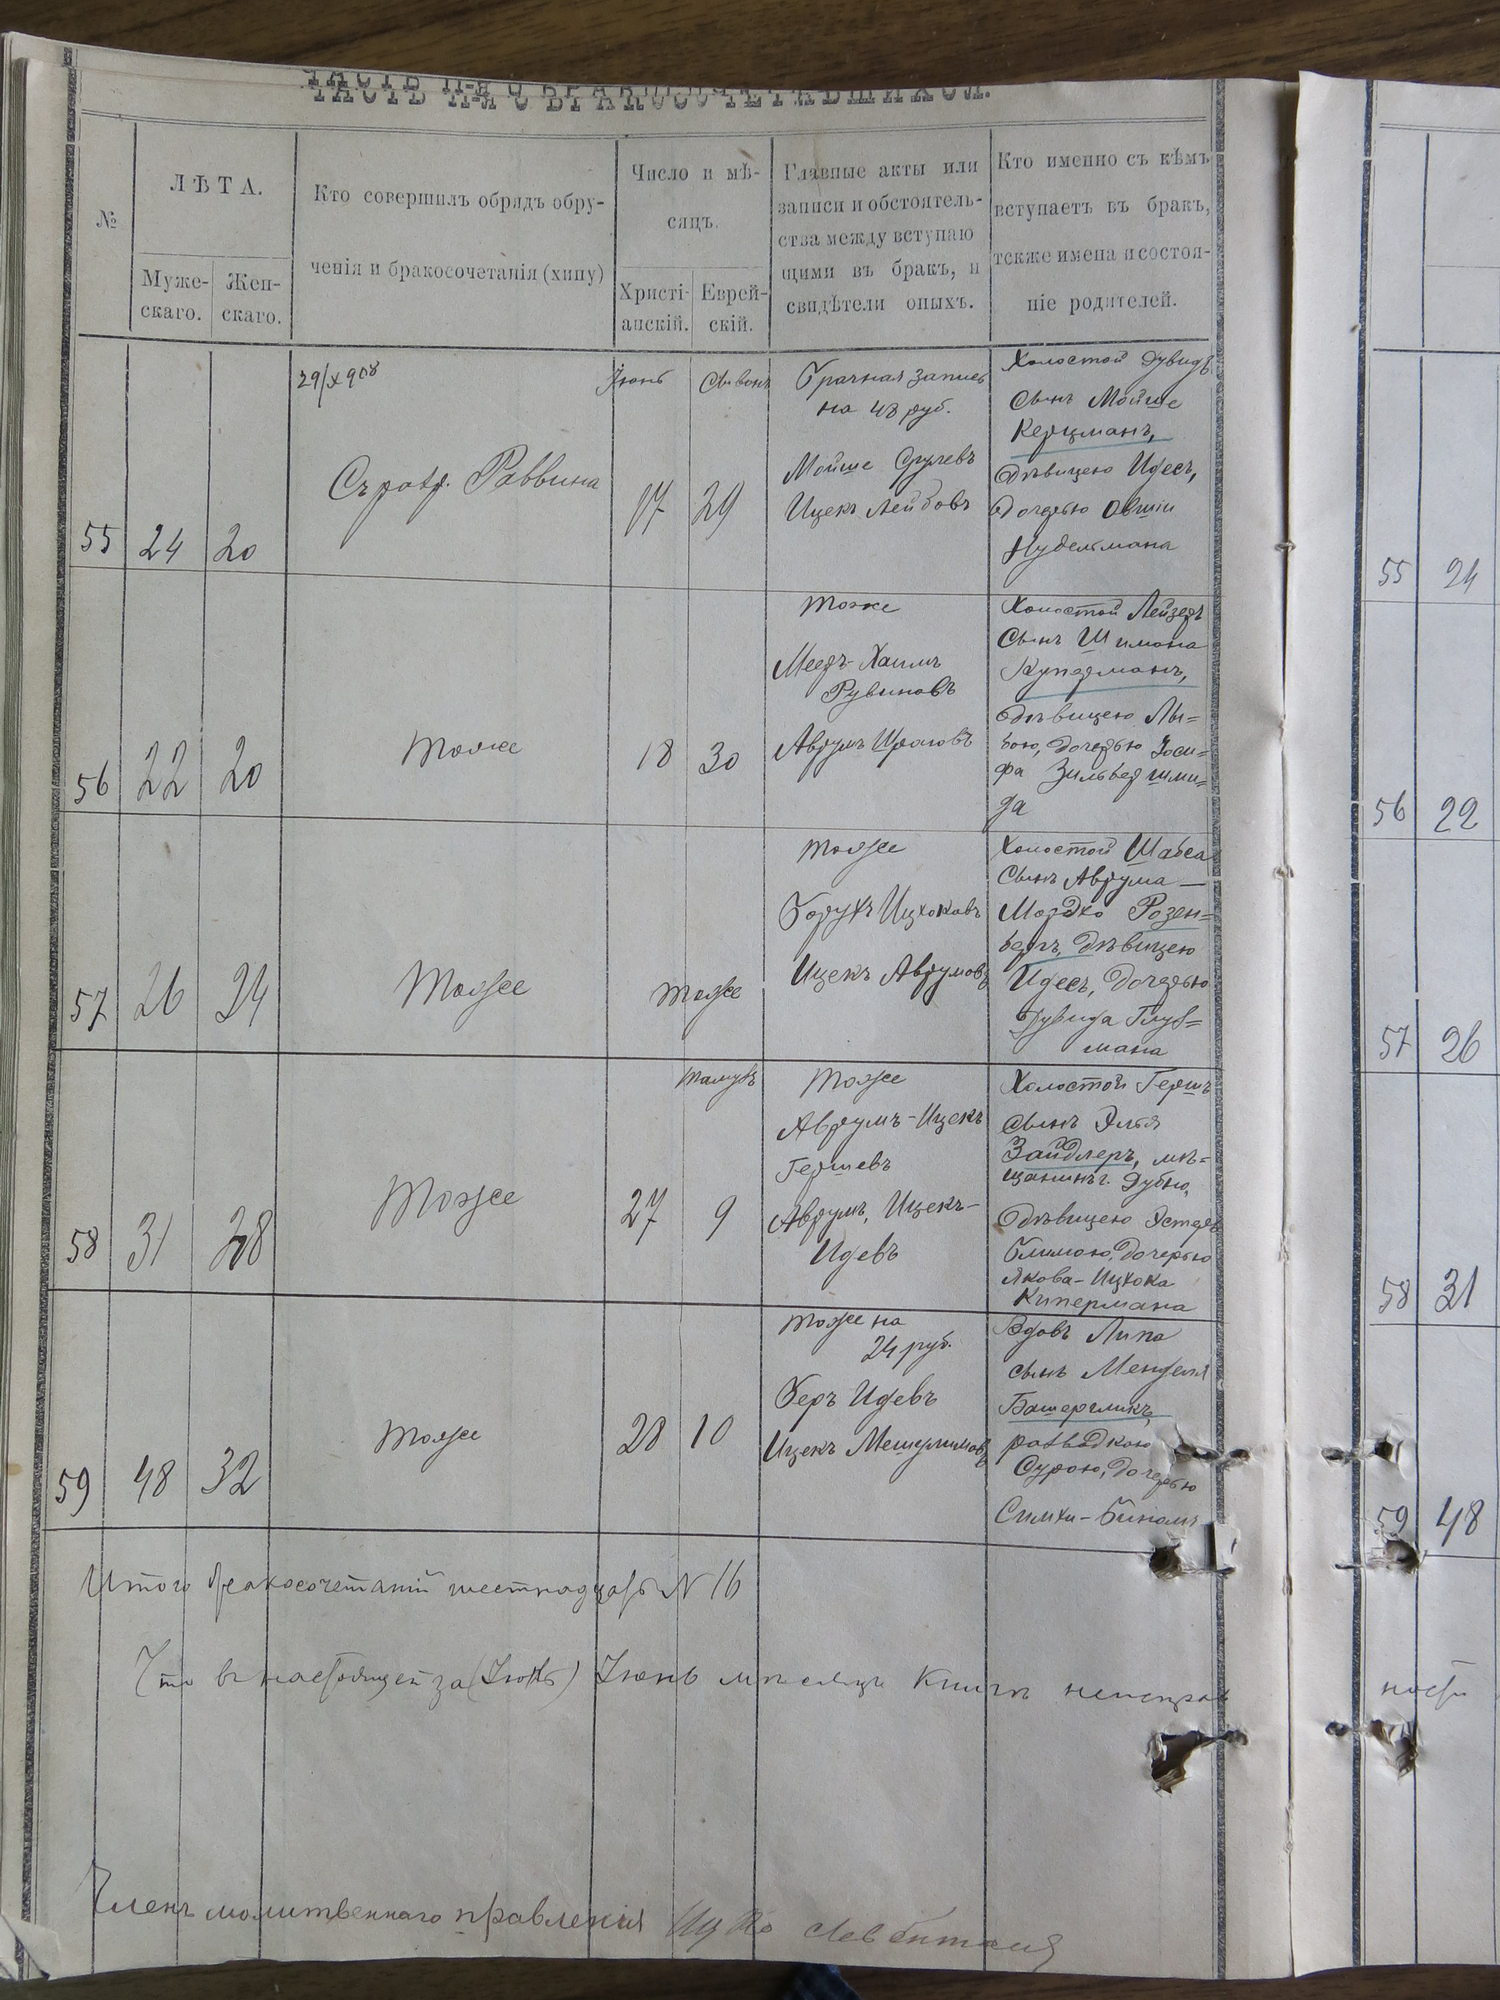 ЧАСТЬ II-я О БРАКОСОЧЕТАВШИХСЯ.
№
ЛѢТА.
Муже-
скаго.
Жен-
скаго.
Кто совершилъ обрядъ обру-
ченія и бракосочетанія (хипу)
Число и мѣ-
сяцъ.
Христі-
анскій.
Еврей-
скій.
Главные акты или
записи и обстоятель-
ства между вступаю
щими въ бракъ, и
свидѣтели оныхъ.
Кто именно съ кѣмъ
вступаетъ въ бракъ,
также имена и состоя-
ніе родителей.
55
24
20
29/X 908
Раввина
Іюнь
17
Сивонъ
29
Брачная запись
на 48 руб.
Мойше Срулевъ
Ицекъ Лейбовъ
Холостой Дувидъ
сынъ Мойше
Керцманъ,
дѣвицею Идесъ,
дочерью Овшіи
Нудельмана
56
22
20
тоже
18
30
тоже
Мееръ-Хаимъ
Рувиновъ
Аврумъ Сроловъ
Холостой Лейзеръ
сынъ Шимона
Куперманъ,
дѣвицею Ли=
бою, дочерью Іоси=
фа Зильбершми=
да
57
26
24
тоже
тоже
тоже
Борухъ Ицхоковъ
Ицекъ Аврумовъ
Холостой Шабса
сынъ Аврума —
Мордко Розен=
бергъ, дѣвицею
Идесъ, дочерью
Дувида Глуз=
мана
58
31
28
тоже
27
Тамузъ
9
тоже
Аврумъ-Ицекъ
Гершевъ
Аврумъ, Ицекъ-
Идевъ
Холостой Гершъ
сынъ Эльи
Зайдлеръ, мѣ=
щанинъ г. Дубно,
дѣвицею Эстеръ
Блимою, дочерью
Якова-Ицхока
Кипермана
59
48
32
тоже
28
10
тоже на
24 руб.
Беръ Идевъ
Ицекъ Мешулимовъ
Вдовъ Липа
сынъ Менделя
Башерглихъ,
разводкою
Сурою, дочерью
Симхи-Бинемъ
Итого бракосочетаній шестнадцать N 16
Что въ настоящей за (Іюнь) Іюнь мѣсяцъ книгѣ неисправ
Членъ молитвеннаго правленія Ицко
55
24
56
22
57
26
58
31
59
48